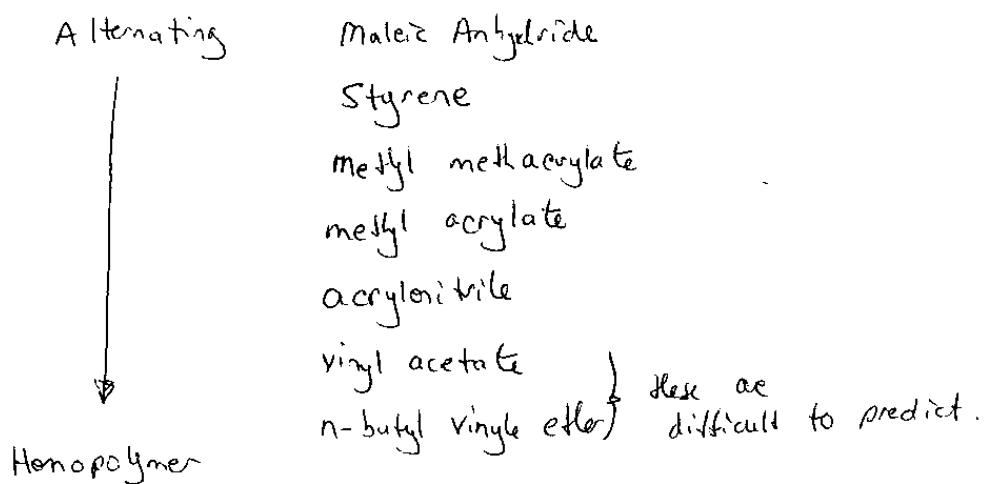 Alternating
Maleic Anhydride
Styrene
methyl methacrylate
methyl acrylate
acrylonitrile
vinyl acetate
n-butyl vinyle ether
these are
difficult to predict.
Homopolymer